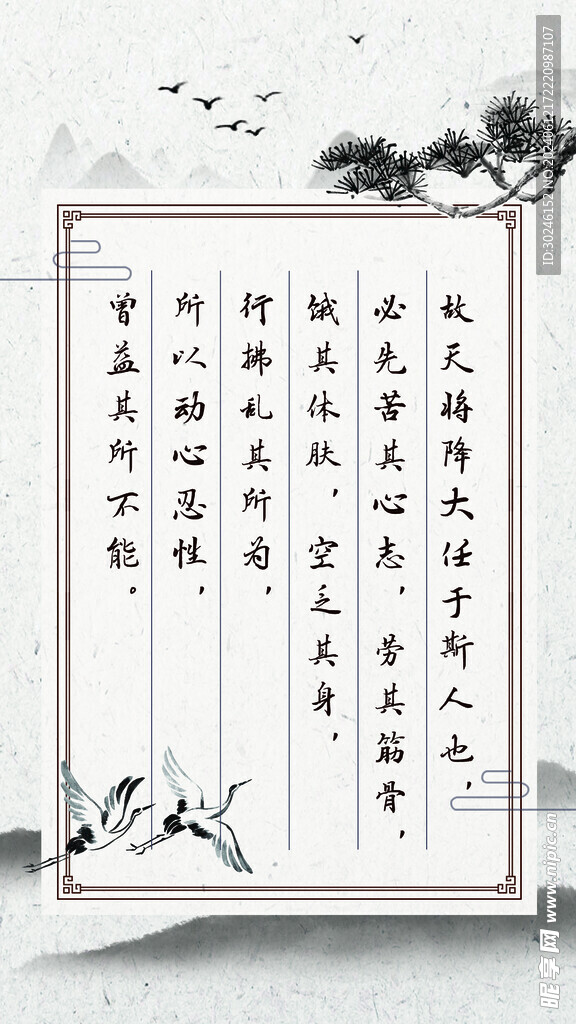 故天将降大任于斯人也，
必先苦其心志，劳其筋骨，
饿其体肤，空乏其身，
行拂乱其所为，
所以动心忍性，
曾益其所不能。
ID:30246152 NO:20240612172220987107
昵享网 www.nipic.cn